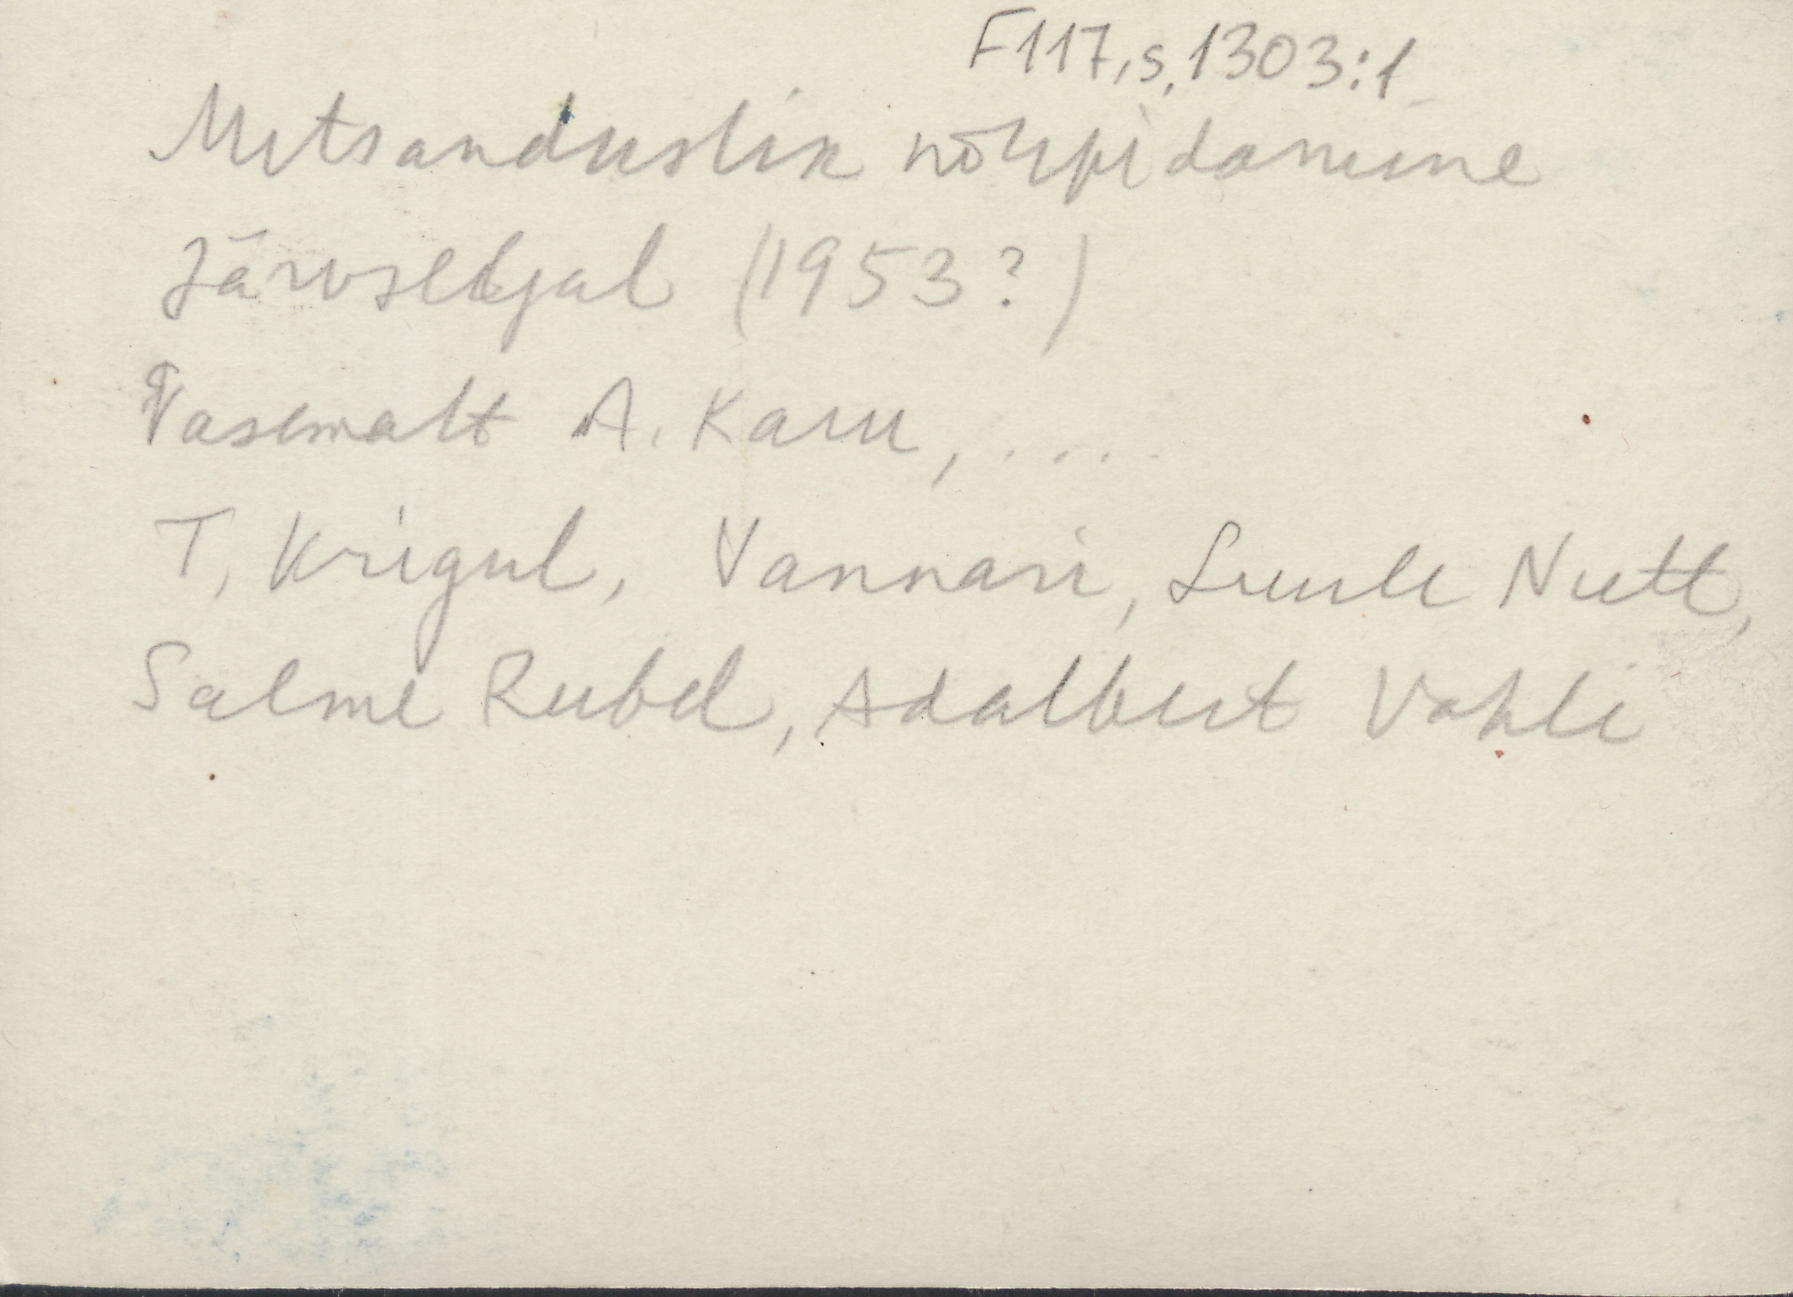 F117,s,1303:1
Metsanduslik nõupidamine
Järvseljal (1953?)
Vasemalt A. Karu, . . . .
T. Krigul, Vannari, Luule Nutt,
Salme Rubel, Adalbert Vahli